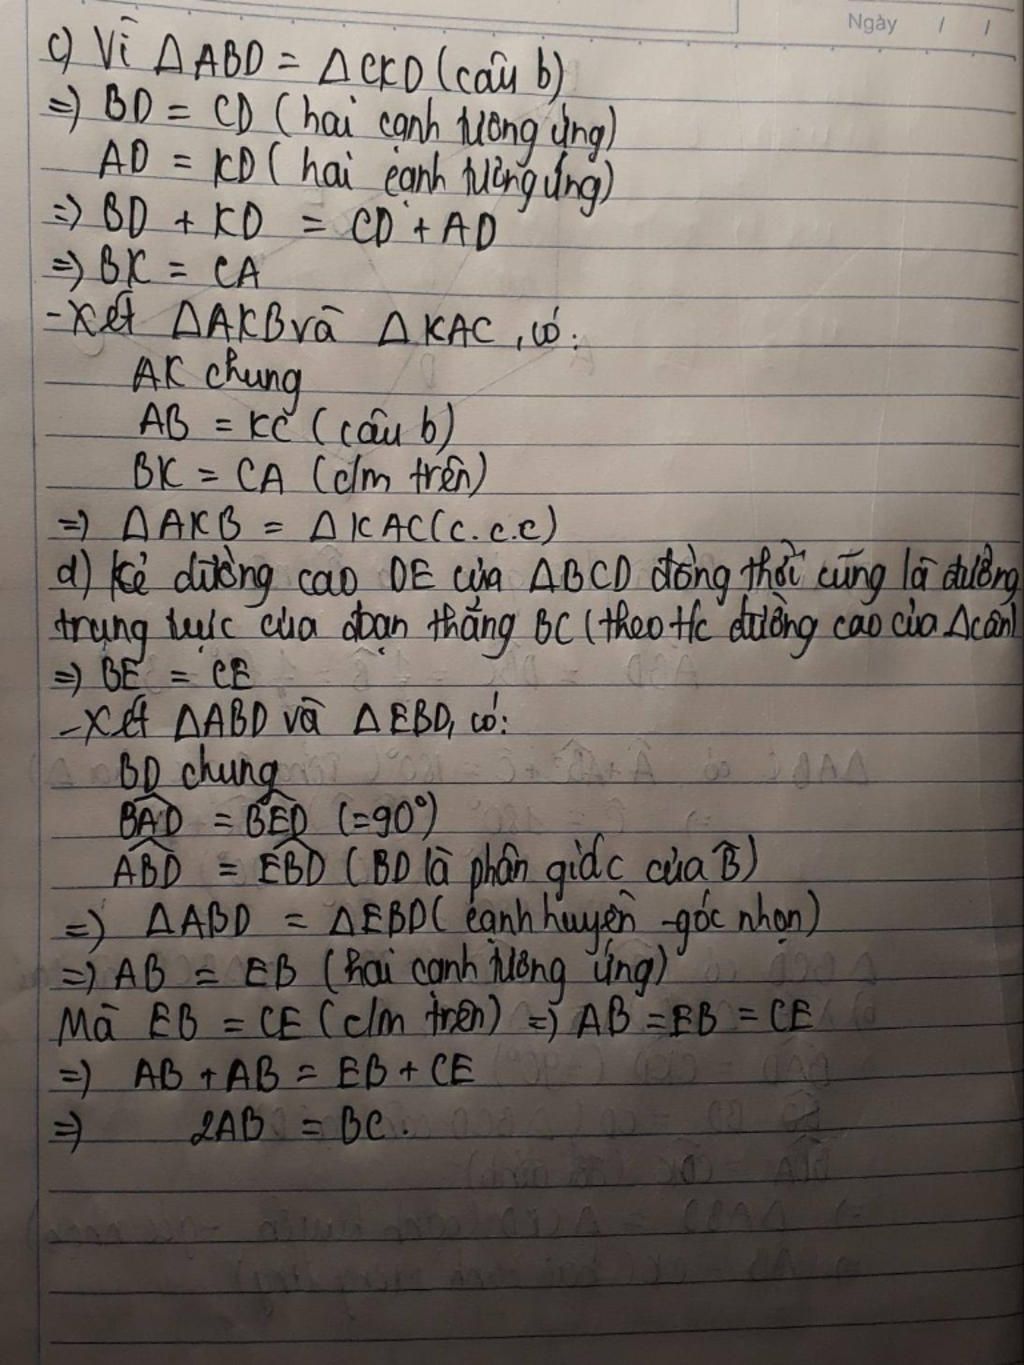 Ngày / /
c) Vì ΔABD = ΔCKD (câu b)
=) BD = CD (hai cạnh tương ứng)
AD = KD (hai cạnh tương ứng)
=) BD + KD = CD + AD
=) BK = CA
- Xét ΔAKB và ΔKAC, có:
AK chung
AB = KC (câu b)
BK = CA (c/m trên)
=) ΔAKB = ΔKAC (c.c.c)
d) Kẻ đường cao DE của ΔBCD đồng thời cũng là đường
trung trực của đoạn thẳng BC (theo t/c đường cao của Δcân)
=) BE = CE
- Xét ΔABD và ΔEBD, có:
BD chung
\widehat{BAD} = \widehat{BED} (=90°)
\widehat{ABD} = \widehat{EBD} (BD là phân giác của \widehat{B})
=) ΔABD = ΔEBD (cạnh huyền - góc nhọn)
=) AB = EB (hai cạnh tương ứng)
Mà EB = CE (c/m trên) =) AB = EB = CE
=) AB + AB = EB + CE
=) 2AB = BC.